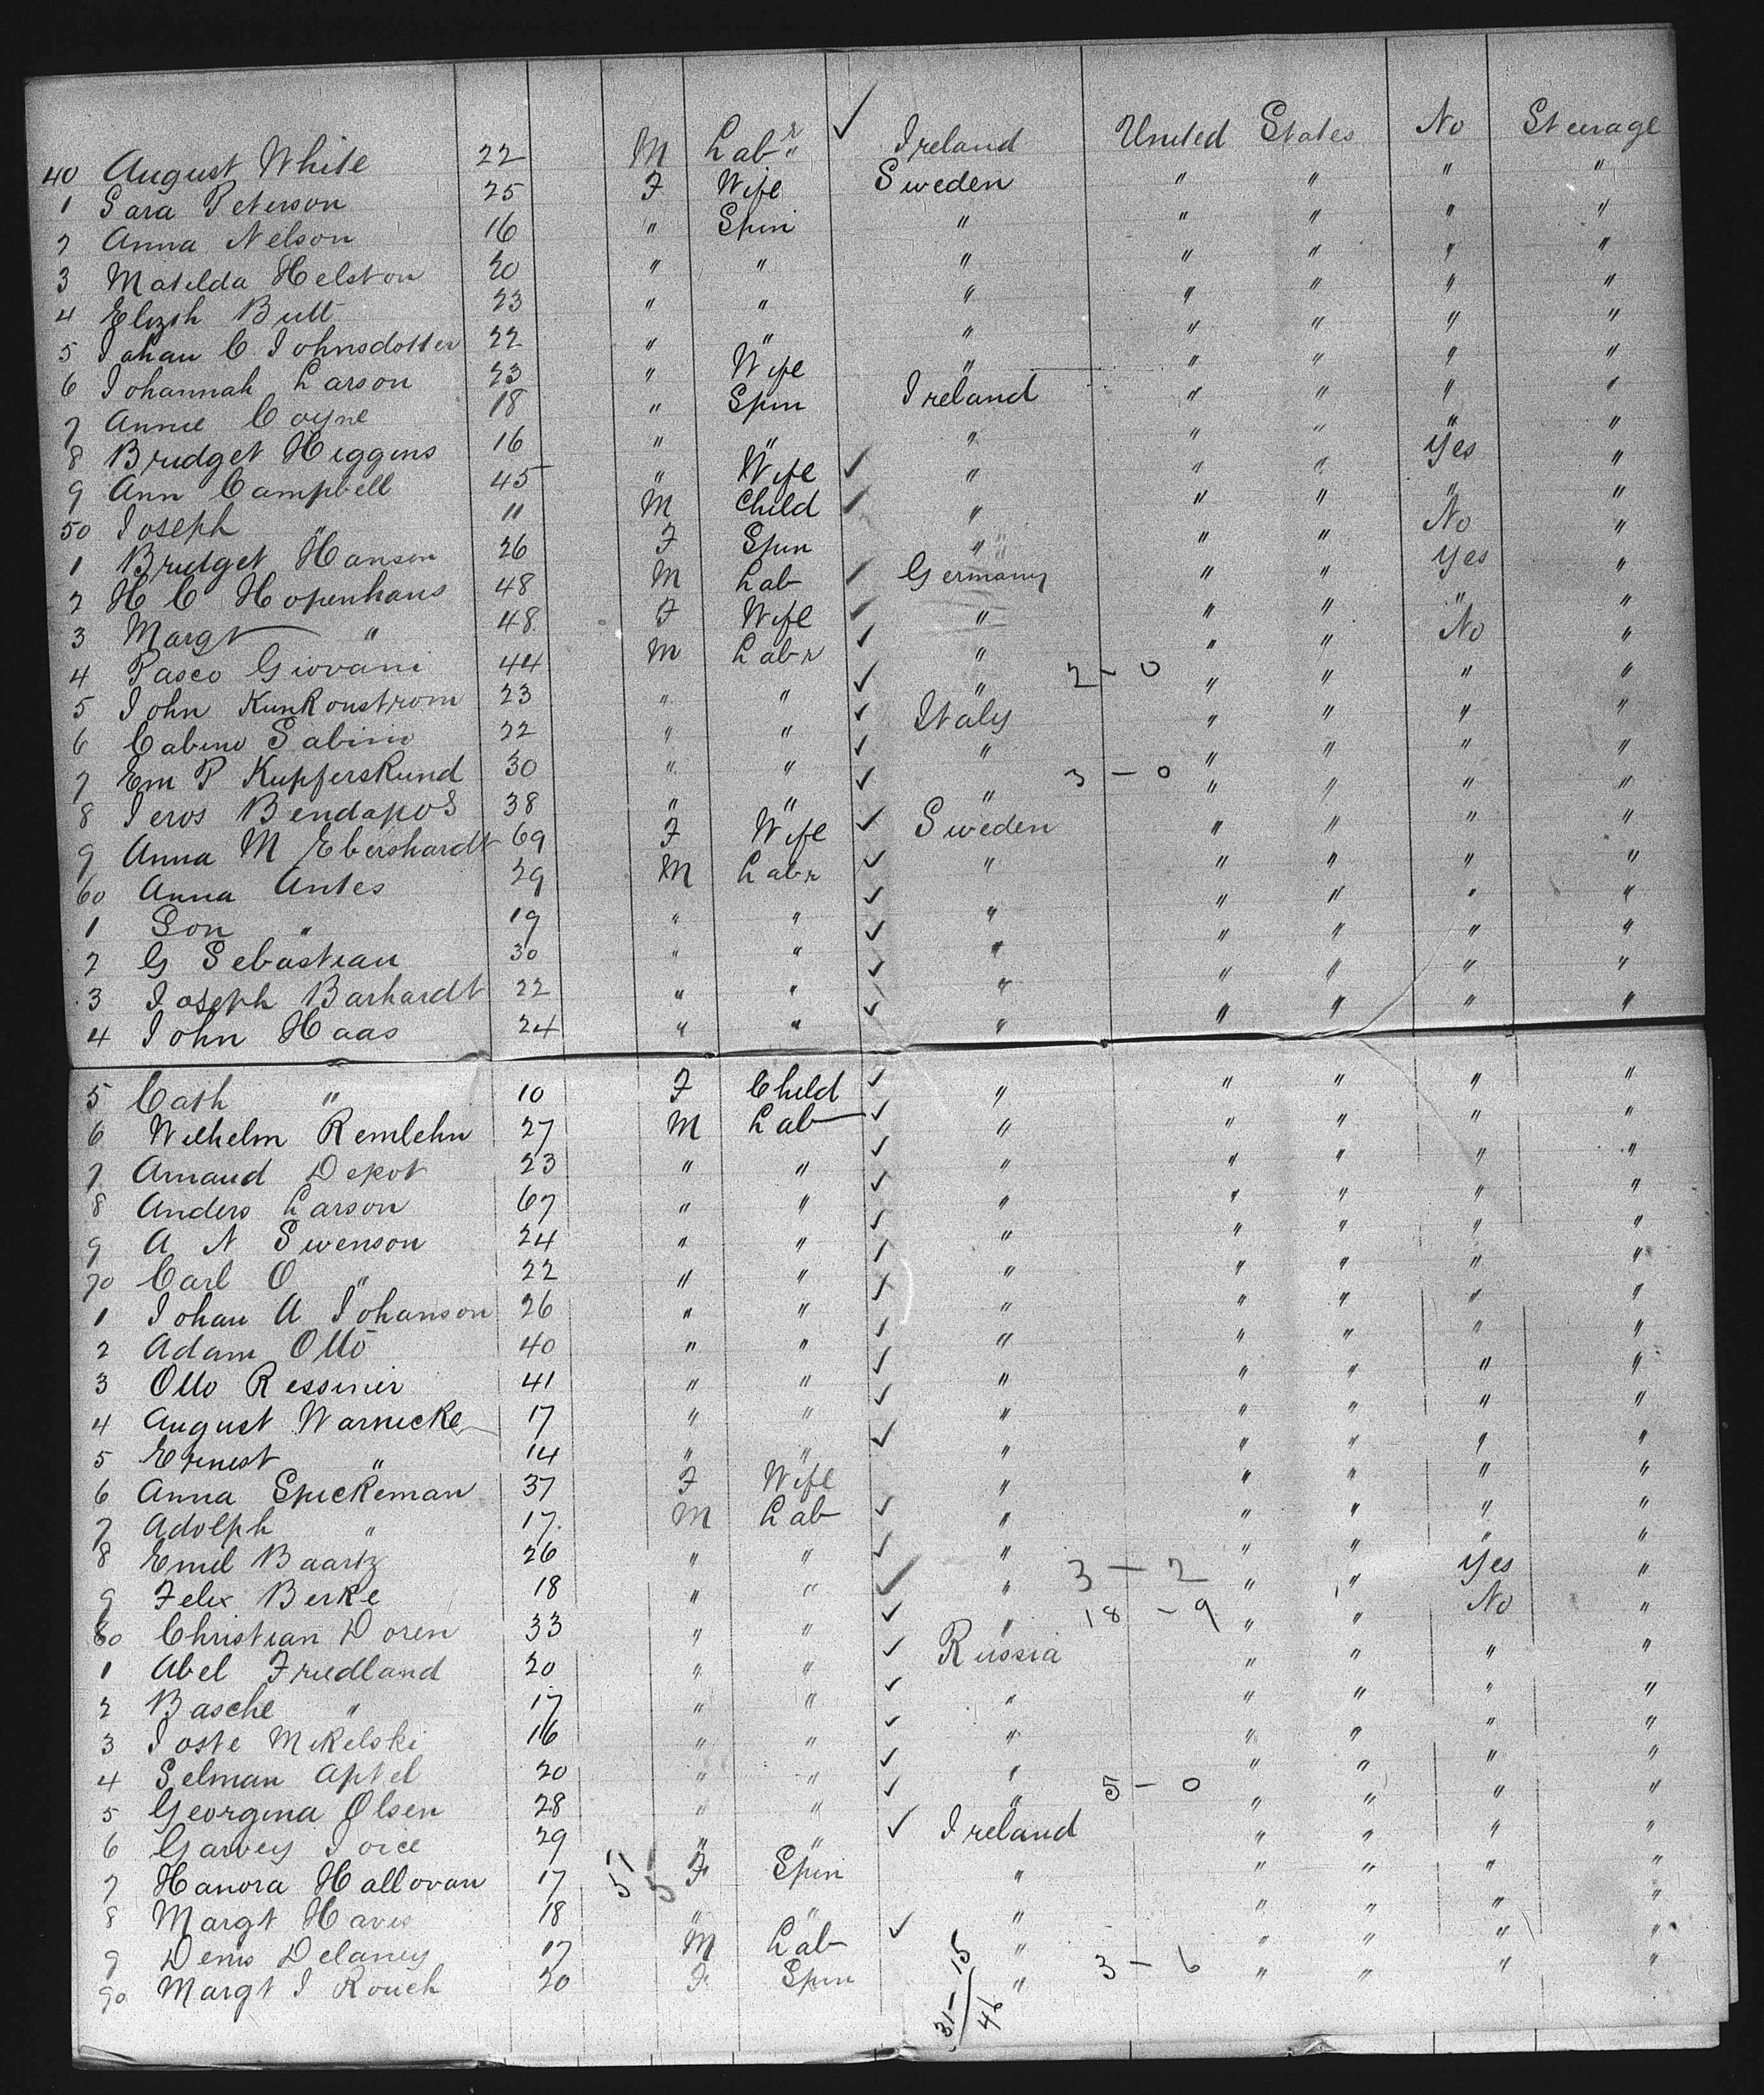 40 August White 22 M Labr ✓ Ireland United States No Steerage
1 Sara Peterson 25 F Wife Sweden " " " "
2 Anna Nelson 16 " Spin " " " " "
3 Matilda Helston 20 " " " " " " "
4 Elizth Butt 23 " " " " " " "
5 Johan C. Johnsdotter 22 " " " " " " "
6 Johannah Larson 23 " Wife " " " " "
7 Annie Coyne 18 " Spin Ireland " " " "
8 Bridget Higgins 16 " " " " " " "
9 Ann Campbell 45 " Wife ✓ " " " Yes "
50 Joseph " 11 M Child ✓ " " " " "
1 Bridget Hansen 26 F Spin " " " No "
2 H C Hopenhaus 48 M Lab ✓ Germany " " Yes "
3 Margt " 48 F Wife ✓ " " " " "
4 Pasco Giovani 44 M Labr ✓ " " " No "
5 John Kunkonstrom 23 " " ✓ " 2 - 0 " " " "
6 Cabino Sabini 22 " " ✓ Italy " " " "
7 Em P Kupferskund 30 " " ✓ " " " " "
8 Jeros Bendapos 38 " " ✓ " 3 - 0 " " " "
9 Anna M Ebershardt 69 F Wife ✓ Sweden " " " "
60 Anna Antes 29 M Labr ✓ " " " " "
1 Son " 19 " " ✓ " " " " "
2 G Sebastian 30 " " ✓ " " " " "
3 Joseph Barhardt 22 " " ✓ " " " " "
4 John Haas 24 " " ✓ " " " " "
5 Cath " 10 F Child ✓ " " " " "
6 Wilhelm Remlehn 27 M Lab ✓ " " " " "
7 Arnaud Depot 23 " " ✓ " " " " "
8 Anders Larson 67 " " ✓ " " " " "
9 A N Swenson 24 " " ✓ " " " " "
70 Carl O " 22 " " ✓ " " " " "
1 Johan A Johanson 26 " " ✓ " " " " "
2 Adam Otto 40 " " ✓ " " " " "
3 Otto Ressinir 41 " " ✓ " " " " "
4 August Warnicke 17 " " ✓ " " " " "
5 Ernest " 14 " " ✓ " " " " "
6 Anna Spickeman 37 F Wife " " " " "
7 Adolph " 17 M Lab ✓ " " " " "
8 Emil Baartz 26 " " ✓ " " " " "
9 Felix Berke 18 " " ✓ " 3 - 2 " " Yes "
80 Christian Doren 33 " " ✓ " 18 - 9 " " No "
1 Abel Friedland 20 " " ✓ Russia " " " "
2 Basche " 17 " " ✓ " " " " "
3 Joste Mikelski 16 " " ✓ " " " " "
4 Selman Aptel 20 " " ✓ " " " " "
5 Georgina Olsen 28 " " ✓ " 5 - 0 " " " "
6 Garvey Joice 29 " " ✓ Ireland " " " "
7 Hanora Hallovan 17 F Spin " " " " "
8 Margt Haves 18 " " " " " " "
9 Denis Delaney 17 M Lab ✓ " " " " "
90 Margt J Rouch 20 F Spin " 3 - 6 " " " "
31 - 15
46